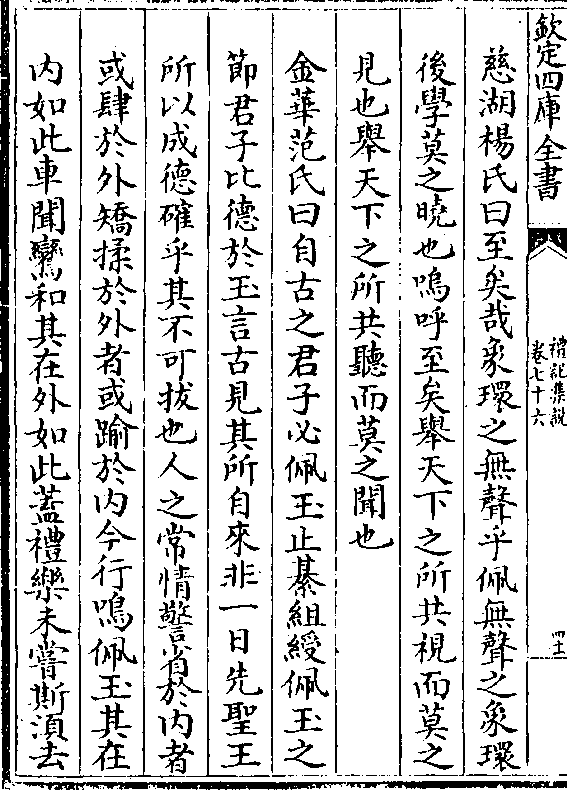 欽定四庫全書
禮記集說
卷七十六
四十一
慈湖楊氏曰至矣哉象環之無聲乎佩無聲之象環
後學莫之曉也嗚呼至矣舉天下之所共視而莫之
見也舉天下之所共聽而莫之聞也
金華范氏曰自古之君子必佩玉止綦組綬佩玉之
節君子比德於玉言古見其所自來非一日先聖王
所以成德確乎其不可拔也人之常情警省於内者
或肆於外矯揉於外者或踰於内今行鳴佩玉其在
内如此車聞鸞和其在外如此蓋禮樂未嘗斯湏去